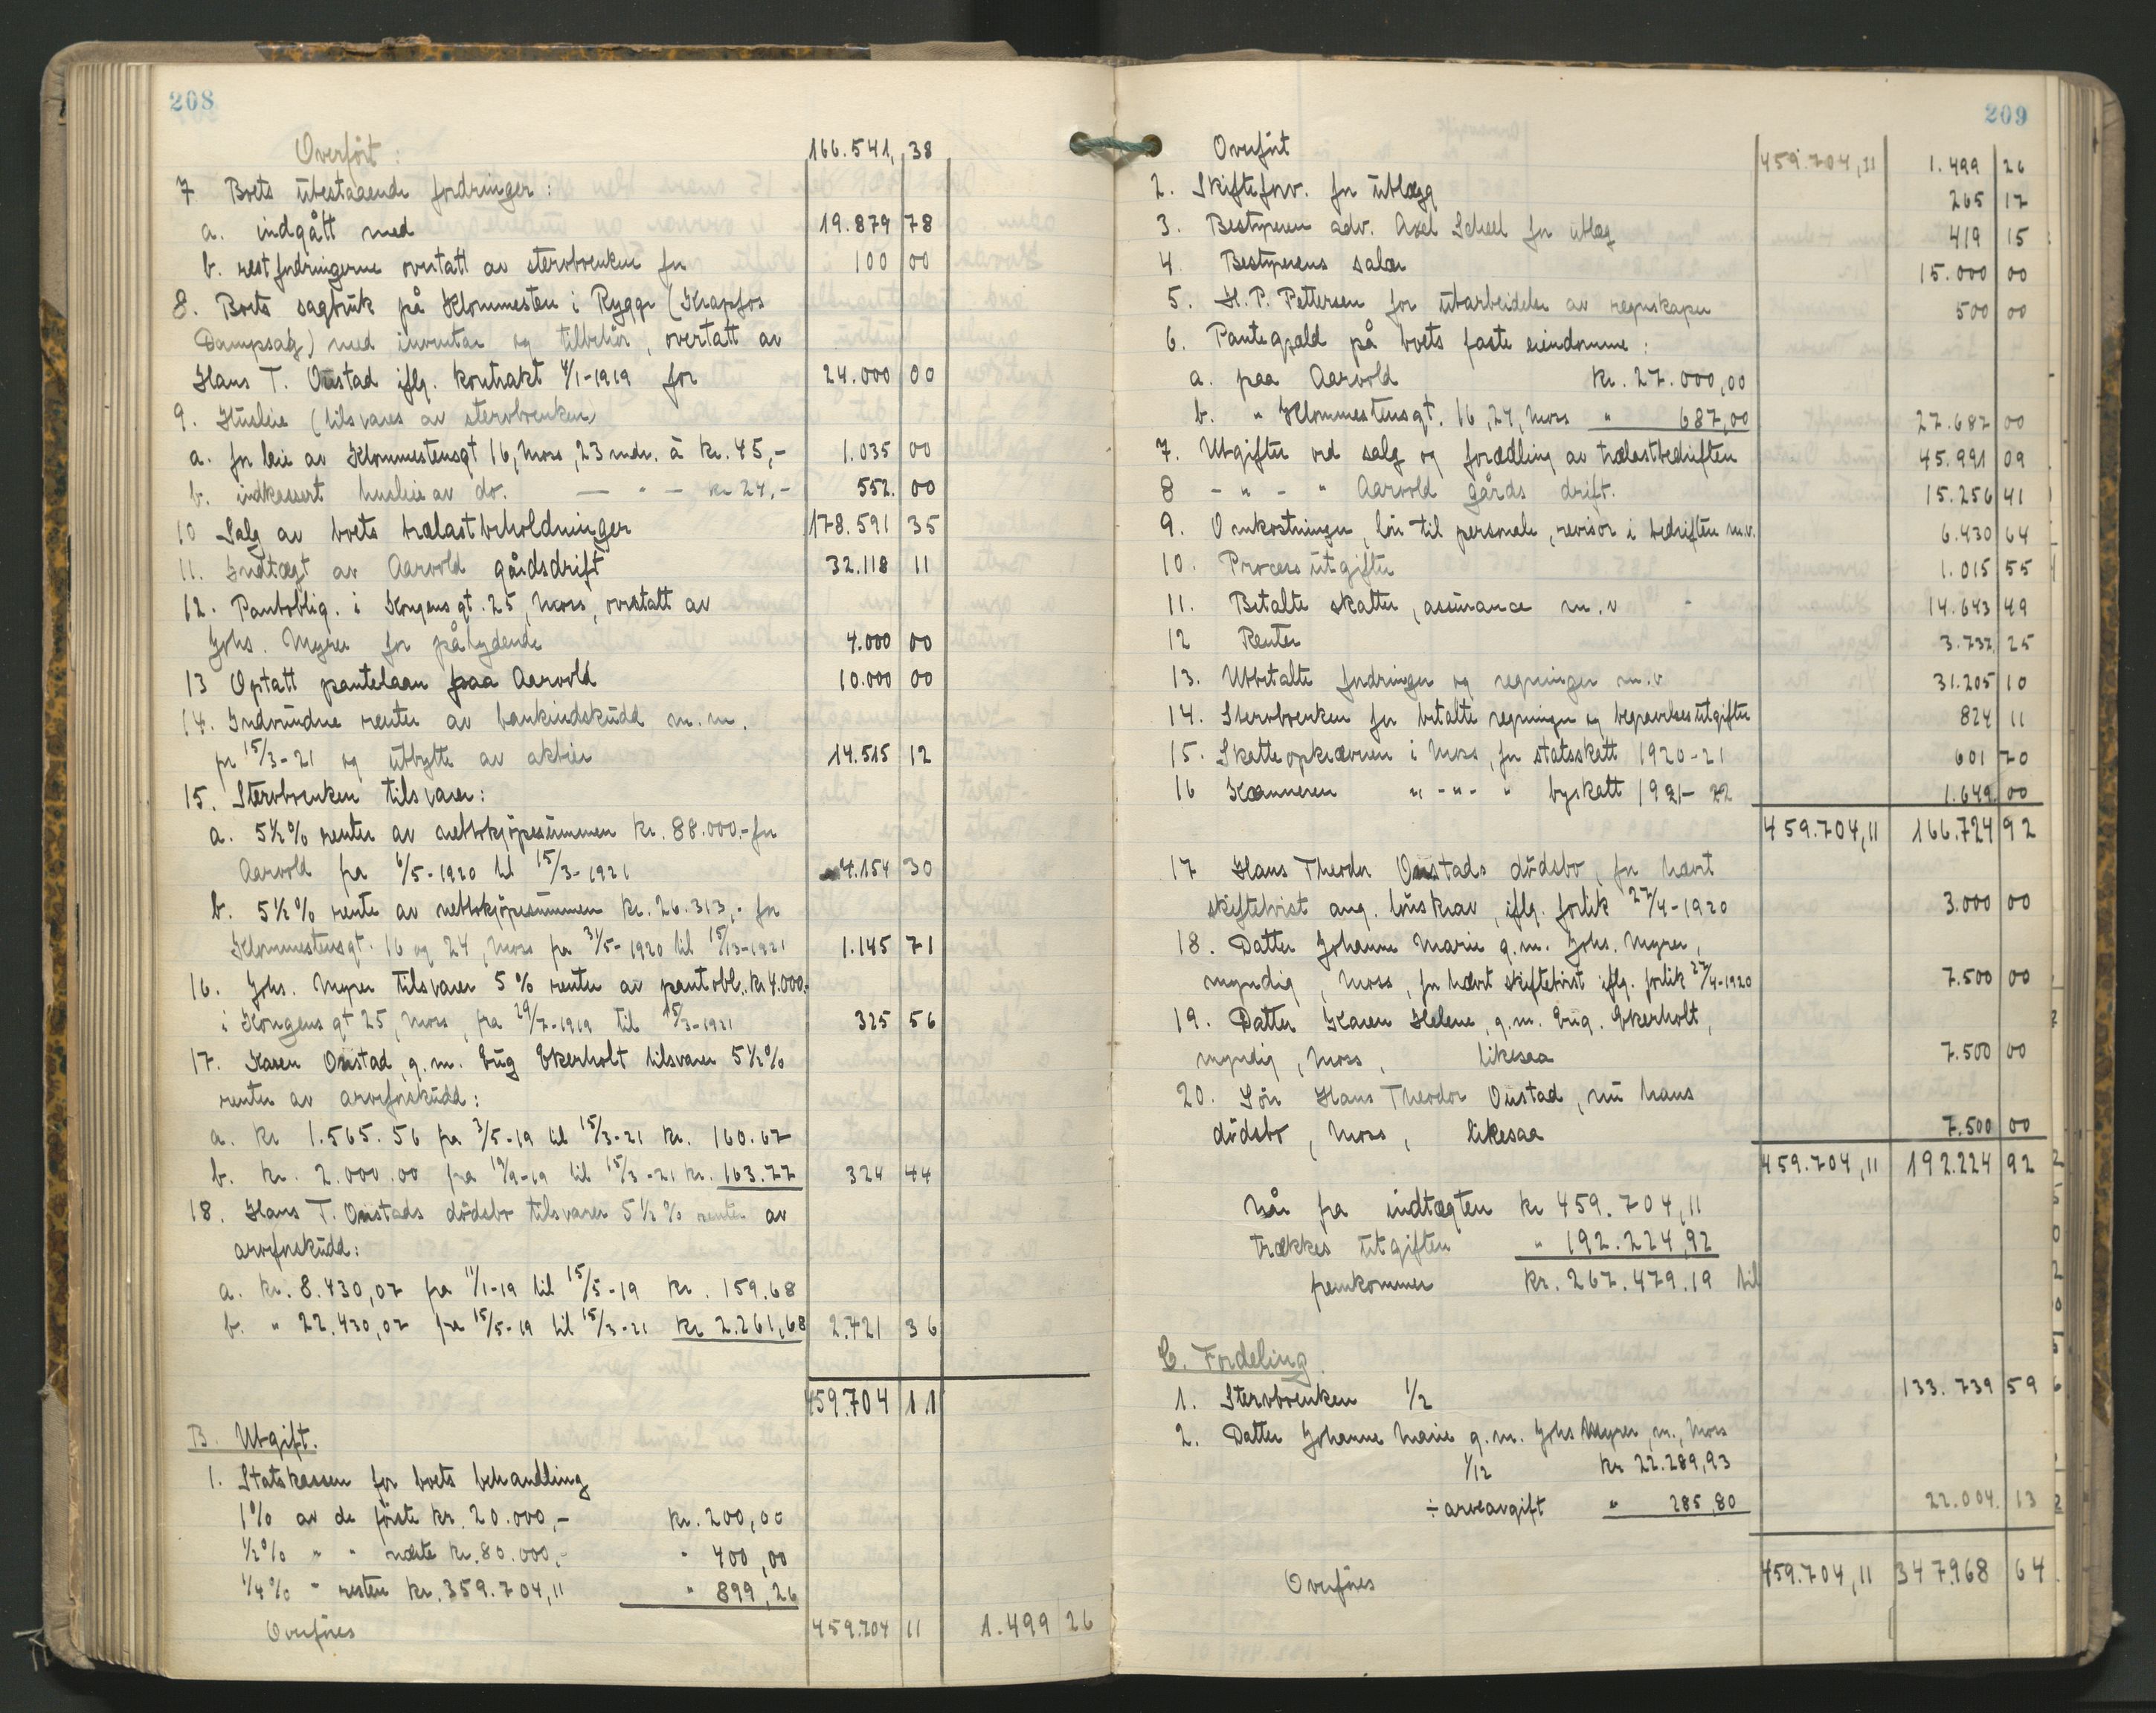 208
Overført: 166.541, 38
7 Boets utestaaende fordringer:
a. indgått med 19.879 78
b. restfordringerne overtatt av stervboenken for 100 00
8. Boets sagbruk på Klommesten i Rygge (Krapfos
Dampsag) med inventar og tilbehør, overtatt av
Hans T. Oustad iflg. kontrakt 4/1-1919 for 24.000 00
9. Husleie (tilsvares av stervboenken)
a. for leie av Klommestensgt 16, Moss, 23 mdr. à kr. 45,- 1.035 00
b. indkassert husleie av do. — " — kr 24,- 552. 00
10 Salg av boets trælastbeholdninger 178.591 35
11. Indtægt av Aarvold gårdsdrift 32.118 11
12. Pantoblig. i Kongensgt. 25, Moss, overtatt av
Johs. Myrer for pålydende 4.000 00
13 Optatt pantelaan paa Aarvold 10.000 00
14. Indvundne renter av bankindskudd m.m.
pr 15/3-21 og utbytte av aktier 14.515 12
15. Stervboenken tilsvarer:
a. 5½% renter av nettokjøpesummen kr. 88.000.- for
Aarvold fra 6/5-1920 til 15/3-1921 4.154 30
b. 5½% rente av nettokjøpesummen kr. 26.313,- for
Klommestensgt. 16 og 24, Moss fra 31/5-1920 til 15/3-1921 1.145 71
16. Johs. Myrer tilsvarer 5% renter av pantobl. kr 4.000.-
i Kongens gt 25, Moss, fra 29/7-1919 til 15/3-1921 325 56
17. Karen Oustad, g.m. Eug Ekerholt tilsvarer 5½%
renter av arveforskudd:
a. kr 1.565.56 fra 3/5-19 til 15/3-21 kr. 160.67
b. kr. 2.000.00 fra 19/9-19 til 15/3-21 kr. 163.77 324 44
18. Hans T. Oustads dødsbo tilsvarer 5½% renter av
arveforskudd:
a. kr. 8.430,07 fra 11/1-19 til 15/5-19 kr. 159.68
b. " 22.430,07 fra 15/5-19 til 15/3-21 kr 2.261,68 2.421 36
459.704 11
B. Utgift.
1. Statskassen for boets behandling
1% av de første kr. 20.000,- kr. 200,00
½% " " næste kr. 80.000,- " 400,00
¼% " resten kr. 359.704,11 " 899,26
Overføres 459.704 11 1.499 26
209
Overført 459.704,11 1.499 26
2. Skifteforv. for utlægg 265 17
3. Bestyreren adv. Axel Scheel for utlæg 419 15
4. Bestyrerens salær 15.000 00
5. H.P. Pettersen for utarbeidelse av regnskaper 500 00
6. Pantegjæld på boets faste eiendomme:
a. paa Aarvold kr. 27.000,00
b. " Klommestensgt. 16, 24, Moss " 687,00 27.687 00
7. Utgifter ved salg og forædling av trælastbedriften 45.991 09
8 - " - " Aarvold gårds drift. 15.256 41
9. Omkostninger, løn til personale, revisor i bedriften m.v. 6.430 64
10. Procesutgifter 1.015 55
11. Betalte skatter, assurance m.v 14.643 49
12 Renter 3.737 25
13. Utbetalte fordringer og regninger m.v 31.205 10
14. Stervboenken for betalte regninger og begravelsesutgifter 824 11
15. Skatteopkræveren i Moss, for statsskatt 1920-21 601 70
16 Kæmneren " - " - " byskatt 1921-22 1.649. 00
459.704,11 166.724 92
17 Hans Theodor Oustads dødsbo, for hævet
skiftetvist ang. lønskrav, iflg. forlik 27/4-1920 3.000 00
18. Datter Johanne Marie g.m. Johs. Myrer,
myndig, Moss, for hævet skiftetvist iflg. forlik 27/4-1920 7.500 00
19. Datter Karen Helene, g.m. Eug. Ekerholt,
myndig, Moss, likesaa 7.500 00
20. Søn Hans Theodor Oustad, nu hans
dødsbo, Moss, likesaa 7.500 00
459.704,11 192.224 92
Når fra indtægten kr 459.704,11
trækkes utgiften " 192.224,92
fremkommer kr. 267.479.19 til
C. Fordeling
1. Stervboenken 1/2 133.739 59
2. Datter Johanne Marie g.m. Johs Myrer, m., Moss
1/12 kr 22.289,93
÷ arveavgift " 285,80 22.004. 13
Overføres 459.704,11 347968 64